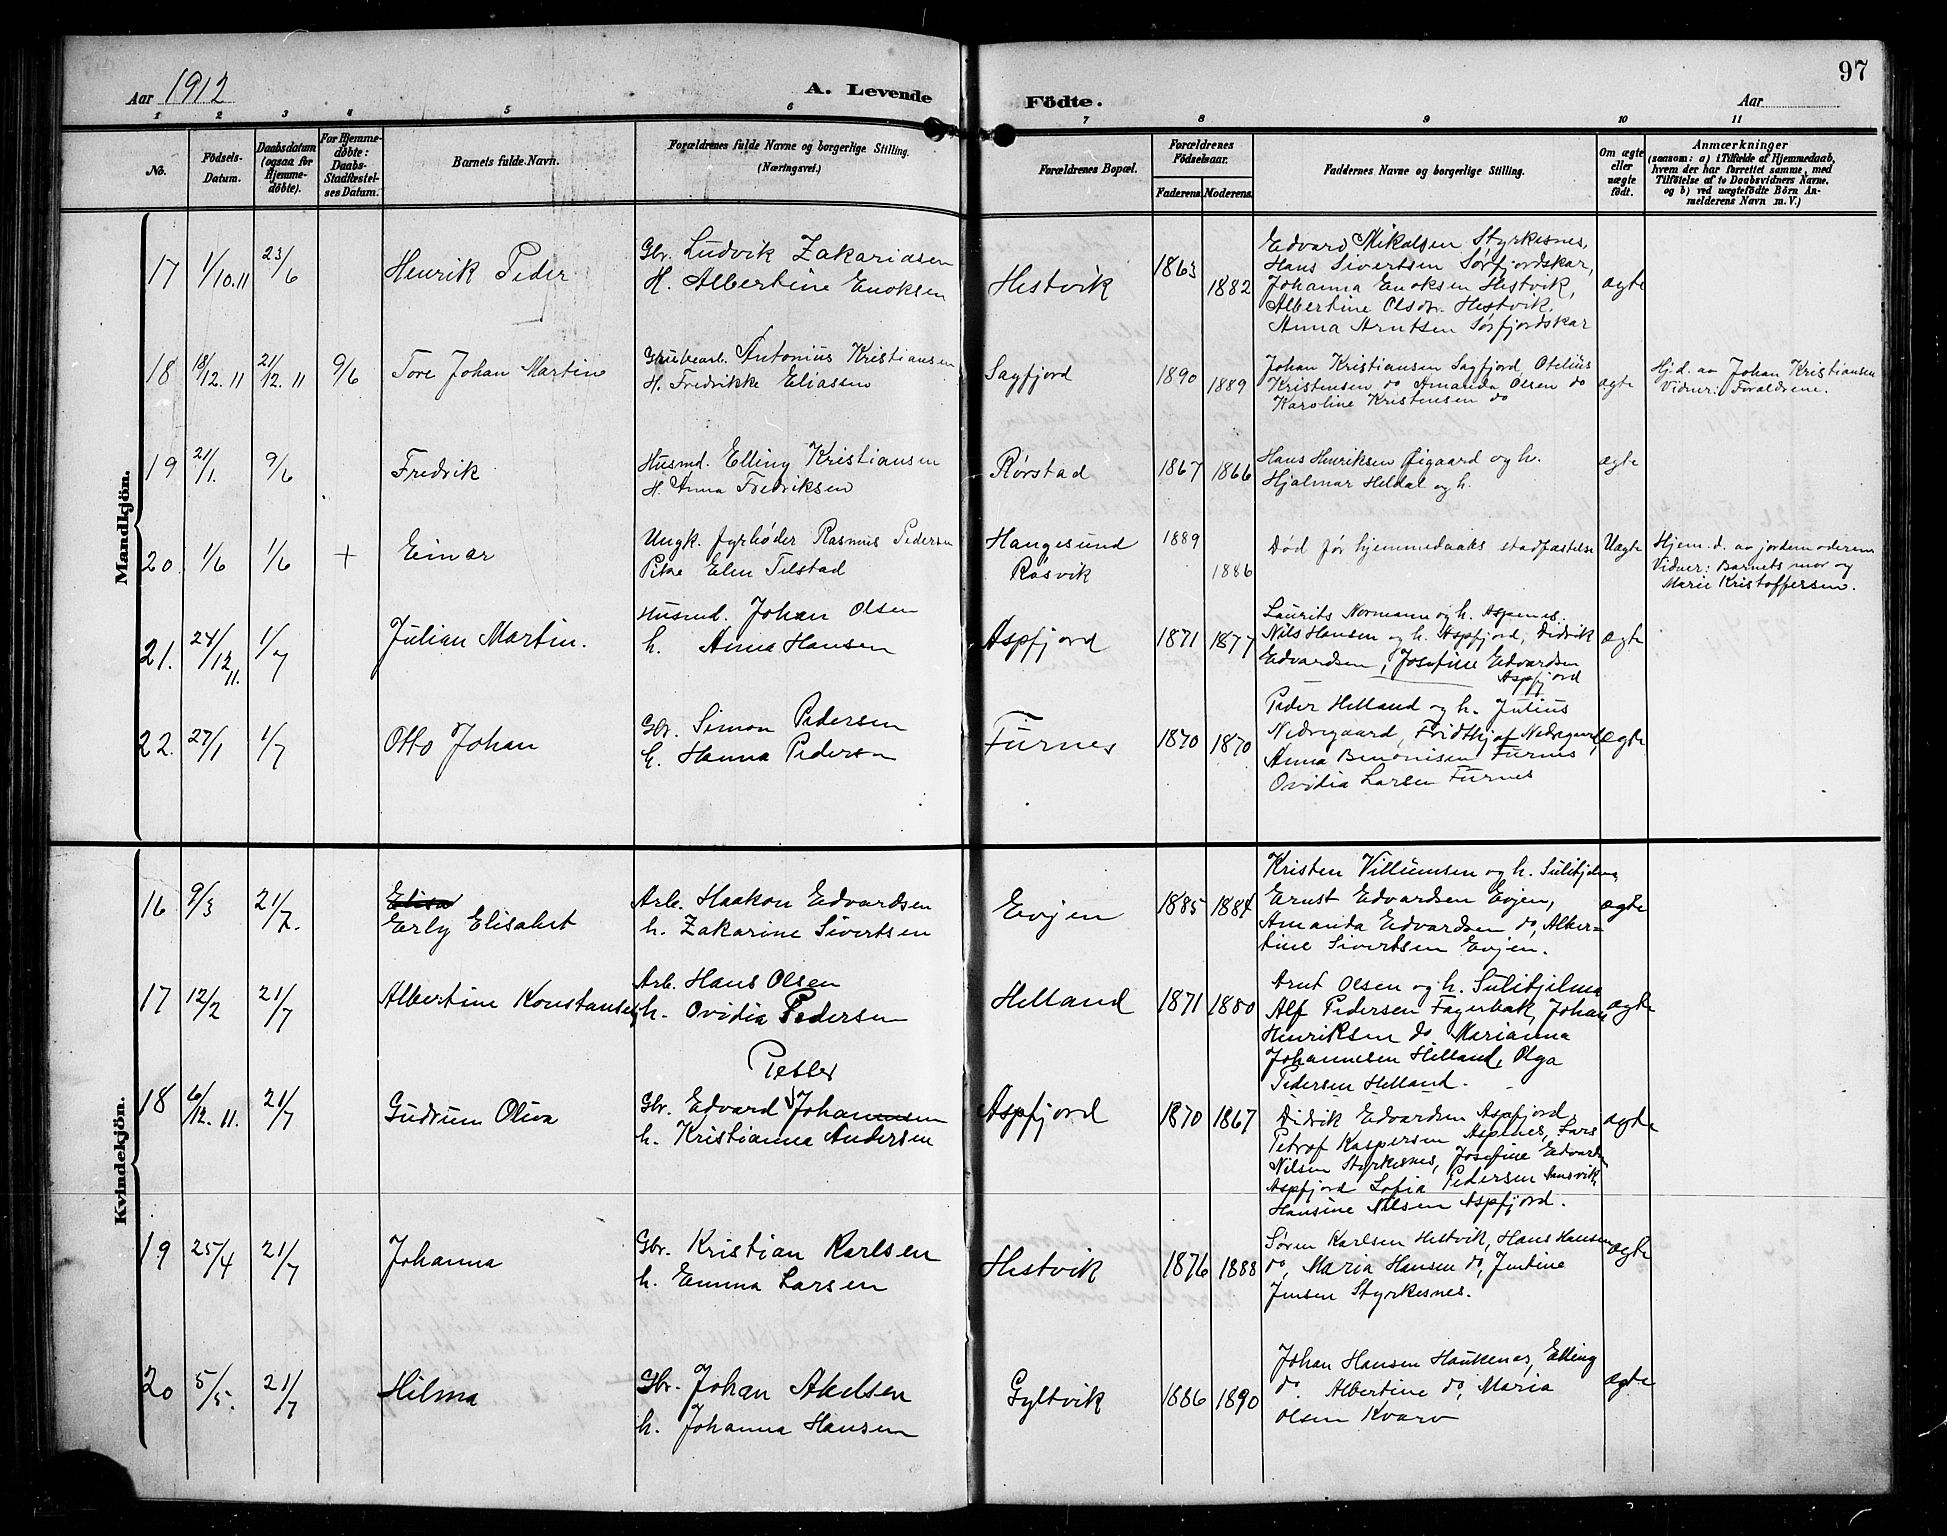 97
Aar 1912
A. Levende
Fødte.
Aar
1 2 3 4 5 6 7 8 9 10 11
No.
Fødsels-
Datum.
Daabsdatum
(ogsaa for
Hjemme-
døbte).
For Hjemme-
døbte:
Daabs-
Stadfæstel-
ses Datum.
Barnets fulde Navn.
Forældrenes fulde Navne og borgerlige Stilling.
(Næringsvei.)
Forældrenes Bopæl.
Forældrenes
Fødselsaar.
Faderens. Moderens.
Faddernes Navne og borgerlige Stilling.
Om ægte
eller
uægte
født.
Anmærkninger
(saasom: a) i Tilfælde af Hjemmedaab,
hvem der har forrettet samme, med
Tilføielse af to Daabsvidners Navne,
og b) ved uægtefødte Børn An-
melderens Navn m. V.)
Mandkjøn.
17 1/10.11 23/6 Henrik Peder
Gbr. Ludvik Zakariasen
H. Albertine Enoksen
Hestvik 1863 1882
Edvard Mikalsen Styrkesnes,
Hans Sivertsen Sørfjordskar,
Johanna Enoksen Hestvik,
Albertine Olsdr. Hestvik,
Anna Arntsen Sørfjordskar
ægte
18 18/12.11 21/12.11 9/6 Tore Johan Martin
Grubearb. Antonius Kristiansen
H. Fredrikke Eliassen
Sagfjord 1890 1889
Johan Kristiansen Sagfjord, Otelius
Kristensen do Amanda Olsen do
Karoline Kristensen do
ægte
Hjd. av Johan Kristiansen
Vidner: Forældrene.
19 21/1. 9/6 Fredrik
Husmd. Elling Kristiansen
H. Anna Fredriksen
Rørstad 1867 1866
Hans Henriksen Øigaard og h.
Hjalmar Heldal og h.
ægte
20. 1/6 1/6 + Einar
Ungk. fyrbøder Rasmus Pedersen
Pike Elen Telstad
Haugesund
Røsvik
1889
1886
Død før hjemmedaabs stadfæstelse
Uægte
Hjem.d. av jordemoderen
Vidner: Barnets mor og
Marie Kristoffersen.
21. 24/12 11. 1/7 Julian Martin.
Husmd. Johan Olsen
h. Anna Hansen
Aspfjord 1871 1877
Laurits Normann og h. Aspenes.
Nils Hansen og h. Aspfjord, Didrik
Edvardsen, Josefine Edvardsen
Aspfjord
ægte
22. 27/1 1/7 Otto Johan
Gbr. Simon Pedersen
h. Hanna Pederson
Furnes 1870 1870
Peder Helland og h. Julius
Nedregaard, Fridthjof Nedregaard,
Anna Benonisen Furnes
Ovidia Larsen Furnes
ægte
Kvindekjøn.
16 9/3 21/7. Elisa
Erly Elisabet
Arb. Haakon Edvardsen
h. Zakarine Sivertsen
Evjen 1885 1884
Kristen Villumsen og h. Sulitjelma,
Ernst Edvardsen Evjen,
Amanda Edvardsen do, Alber=
tine Sivertsen Evjen.
ægte
17 12/2 21/7 Albertine Konstanse
Arb. Hans Olsen
h. Ovidia Pedersen
Helland 1871 1880
Arnt Olsen og h. Sulitjelma
Alf Pedersen Fagerbak, Johan
Henriksen do Marianna
Johannesen Helland, Olga
Pedersen Helland.
ægte
18 6/12.11. 21/7 Gudrun Oliva
Petter
Gbr. Edvard Johannesen
h. Kristianna Andersen
Aspfjord 1870 1867
Didrik Edvardsen Aspfjord,
Petrof Kaspersen Aspenes, Lars
Nilsen Styrkesnes, Josefine Edvardsen
Aspfjord Sofia Pedersen
Hansine Nilsen Aspfjord.
ægte
19 25/4 21/7 Johanna
Gbr. Kristian Karlsen
h. Emma Larsen
Hestvik 1876 1888
Søren Karlsen Hestvik, Hans Hansen
do, Maria Hansen do, Jentine
Jensen Styrkesnes.
ægte
20 5/5. 21/7 Hilma
Gbr. Johan Akelsen
h. Johanna Hansen
Gyltvik 1886 1890
Johan Hansen Haukenes, Elling
do. Albertine do, Maria
Olsen Kvarv
ægte